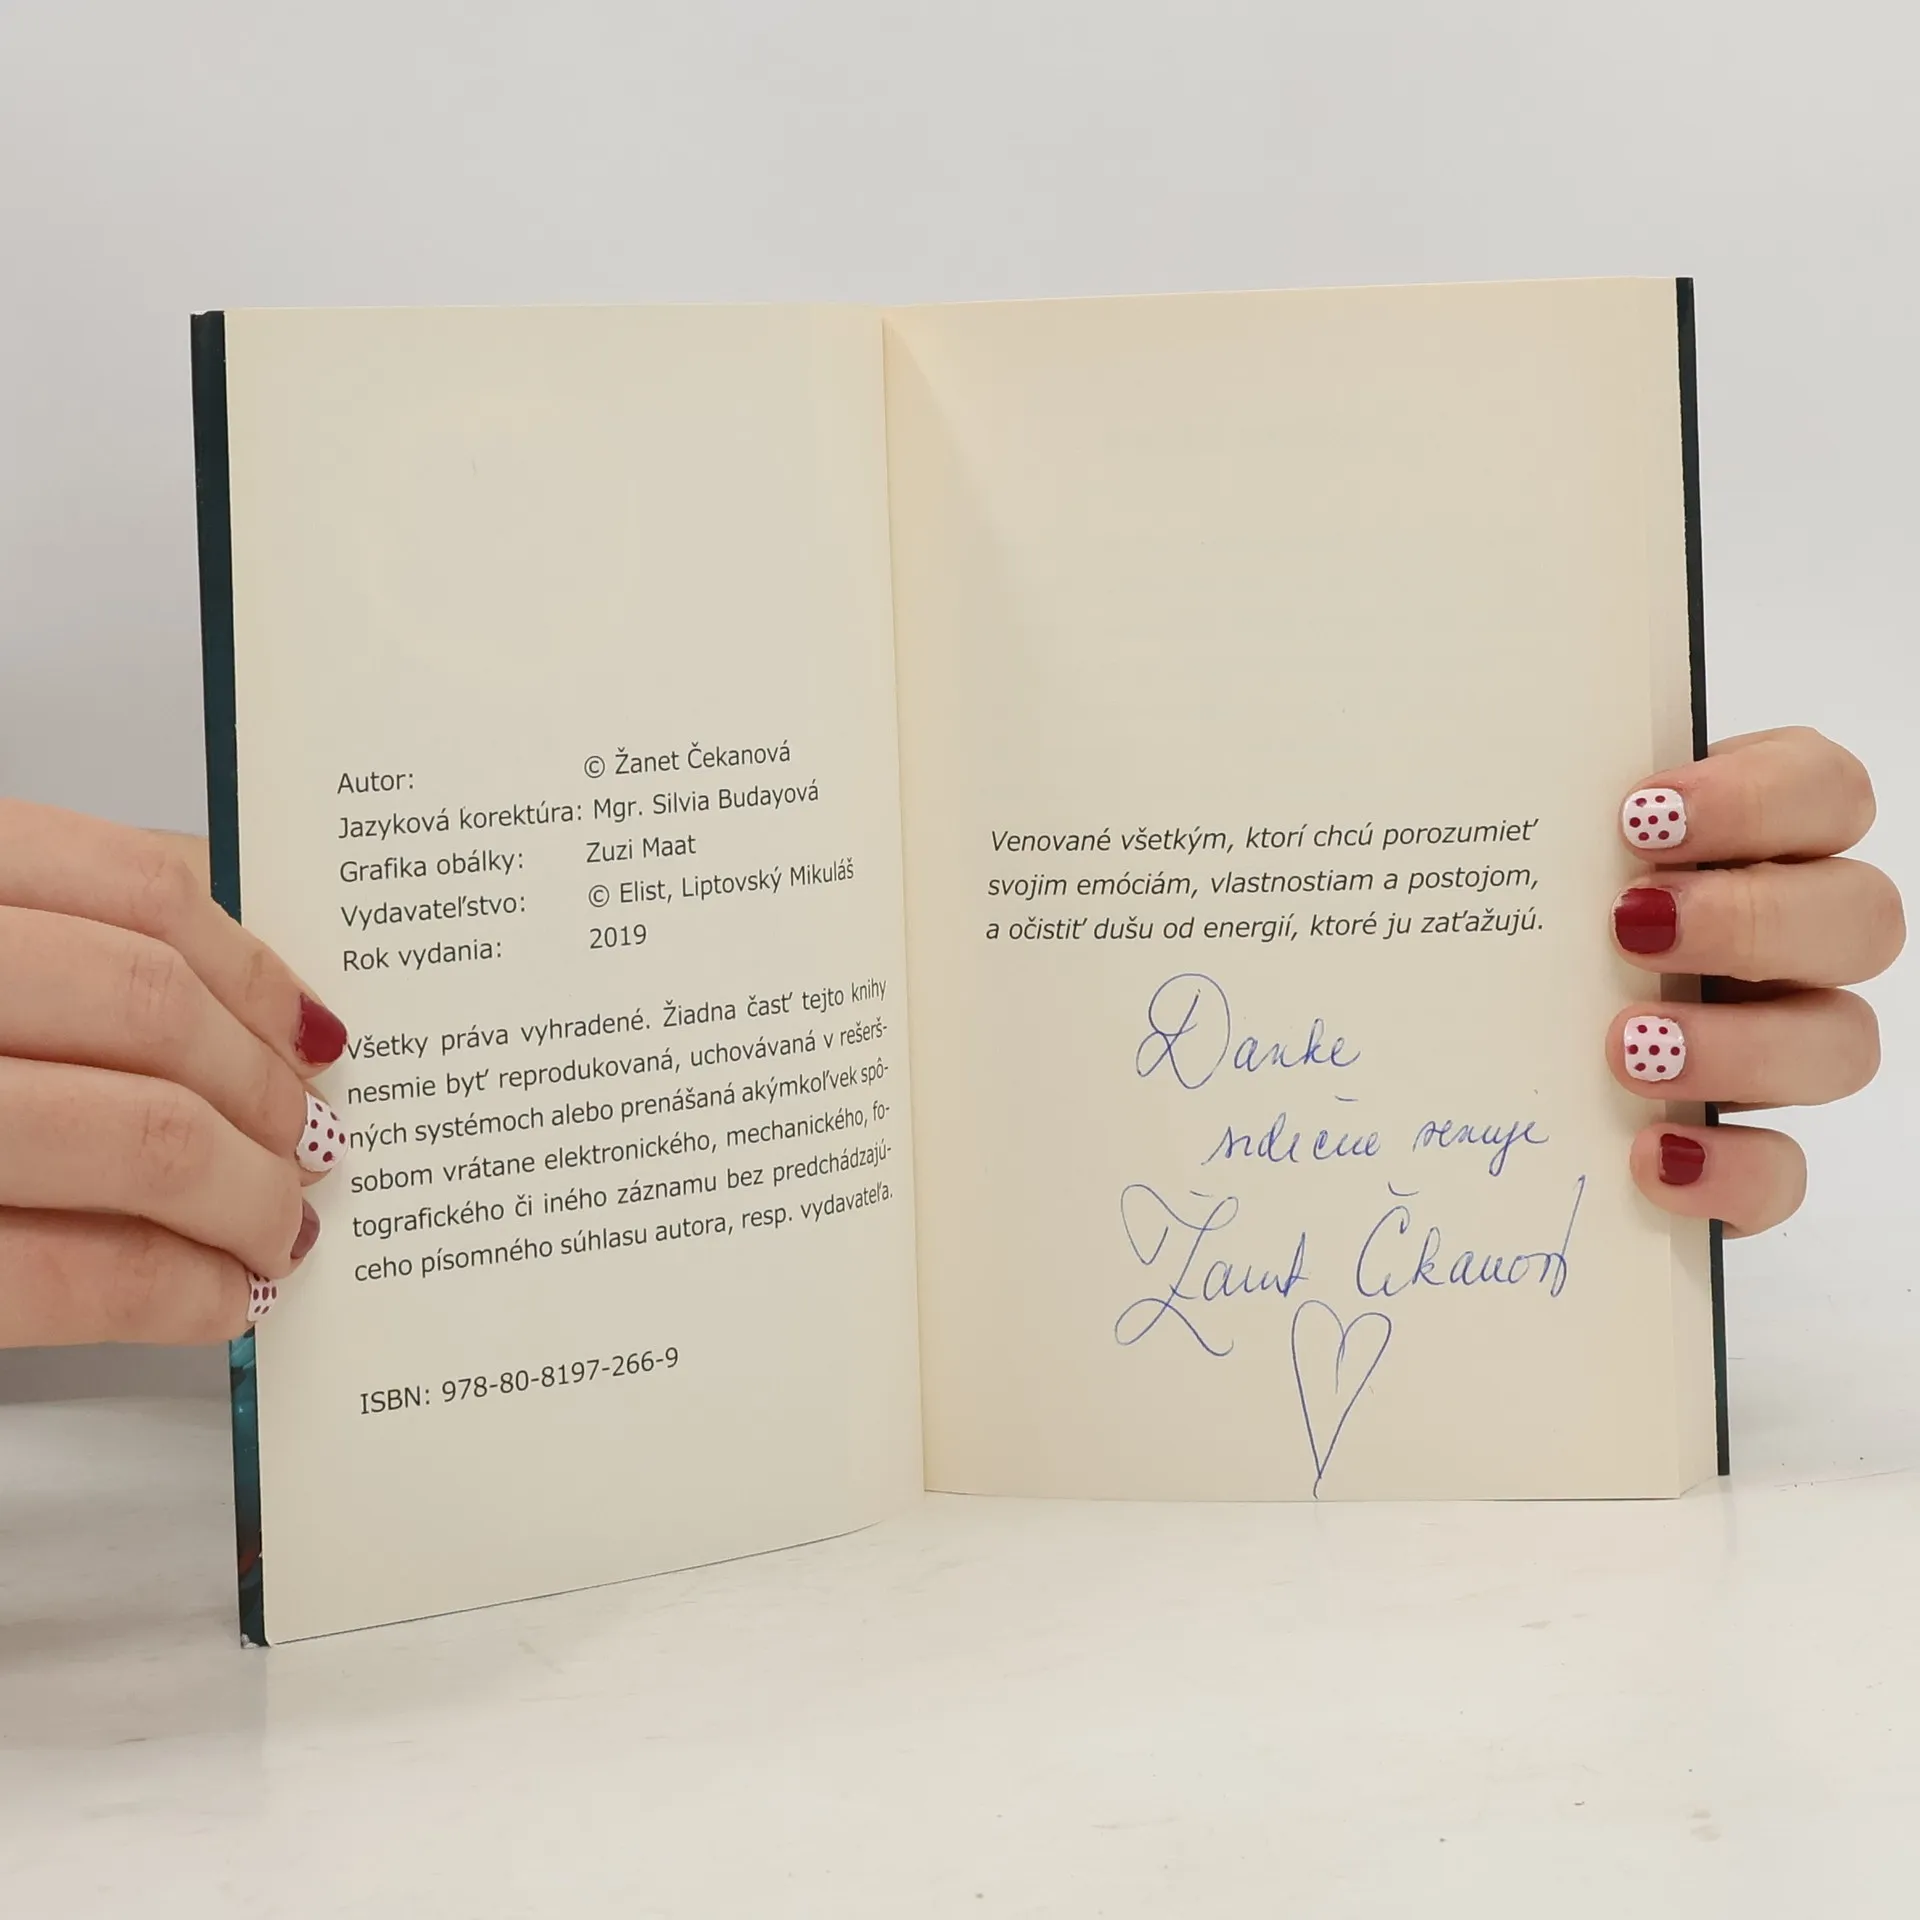 Autor: © Žanet Čekanová
Jazyková korektúra: Mgr. Silvia Budayová
Grafika obálky: Zuzi Maat
Vydavateľstvo: © Elist, Liptovský Mikuláš
Rok vydania: 2019
Všetky práva vyhradené. Žiadna časť tejto knihy
nesmie byť reprodukovaná, uchovávaná v rešerš-
ných systémoch alebo prenášaná akýmkoľvek spô-
sobom vrátane elektronického, mechanického, fo-
tografického či iného záznamu bez predchádzajú-
ceho písomného súhlasu autora, resp. vydavateľa.
ISBN: 978-80-8197-266-9
Venované všetkým, ktorí chcú porozumieť
svojim emóciám, vlastnostiam a postojom,
a očistiť dušu od energií, ktoré ju zaťažujú.
Danke
srdečne venuje
Žanet Čekanová